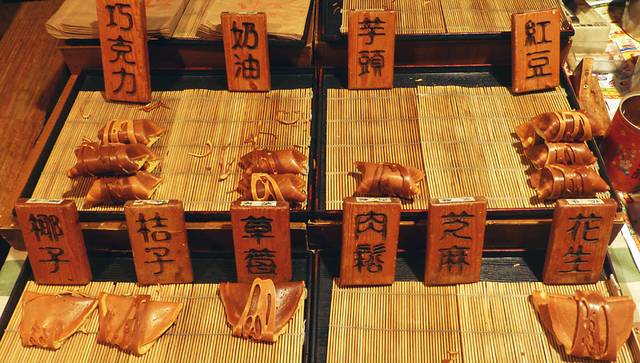 巧克力
奶油
芋頭
紅豆
椰子
桔子
草莓
肉鬆
芝麻
花生